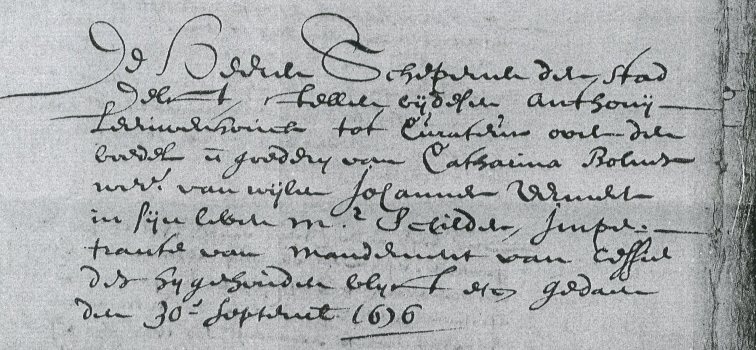 De Heeren Schepenen der stad
Delft, stellen bij desen Anthonij
Leeuwenhouck tot Curateur over den
boedel en goederen van Catharina Bolnes
wede. van wijlen Johannes Vermeer
in sijn leven mr. Schilder, Impe-
trante van mandement van Cessie
den 30e september 1676